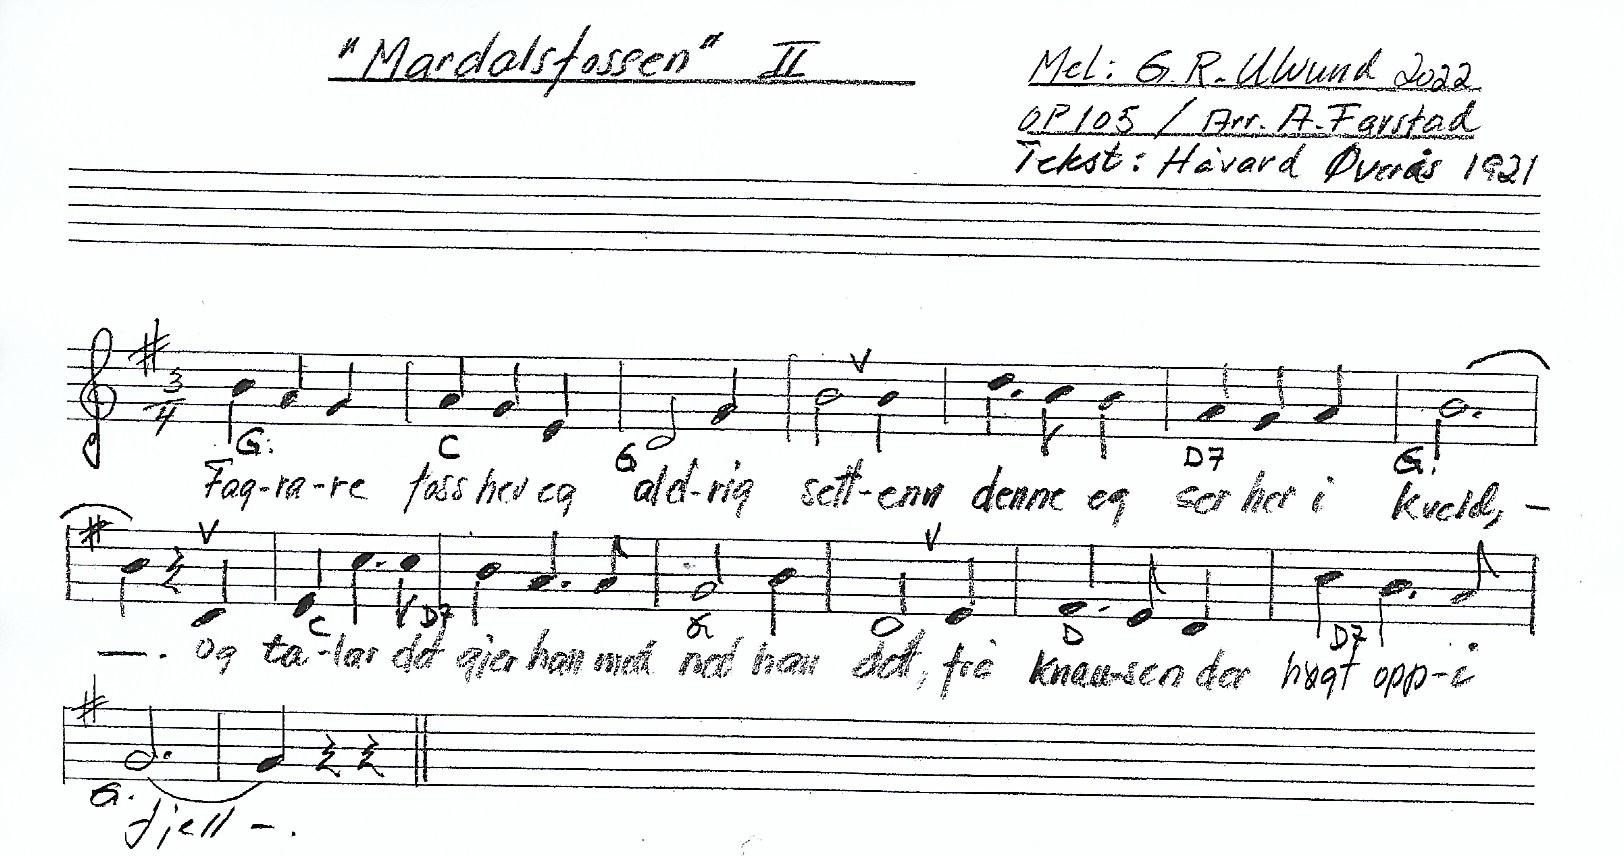 "Mardalsfossen" II
Mel: G. R. Ulvund 2022
OP105 / Arr. A. Farstad
Tekst: Håvard Øverås 1921
3/4
G. C G D7 G.
Fag-ra-re foss hev eg ald-rig sett-enn denne eg ser her i kveld, -
C D7 G D D7
-. og ta-lar det gjer han med ned han det, frå knau-sen der høgt opp-i
G.
fjell -.